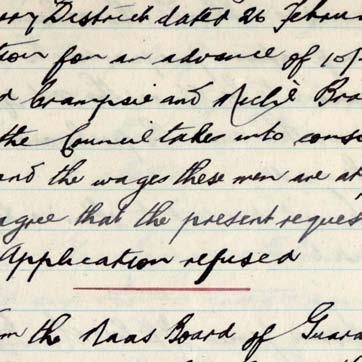 District dated 26 Febru
for an advance of 10/
Crampsie and Michl Bra
the Council takes into cons
and the wages these men are at
agree that the present reques
Application refused
the Naas Board of Guar